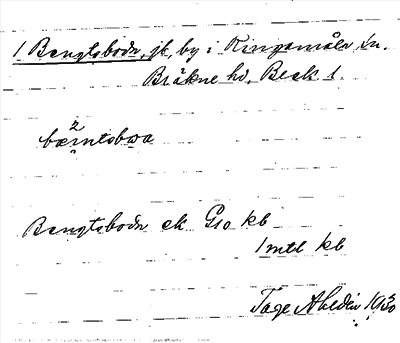 1 Bengtsboda, jb, by i Ringamåla sn.
Bräkne hd, Blek l.
bæ2ntsboa
Bengtsboda ek G10 kb
1 mtl kb
Tage Ahldin 1930